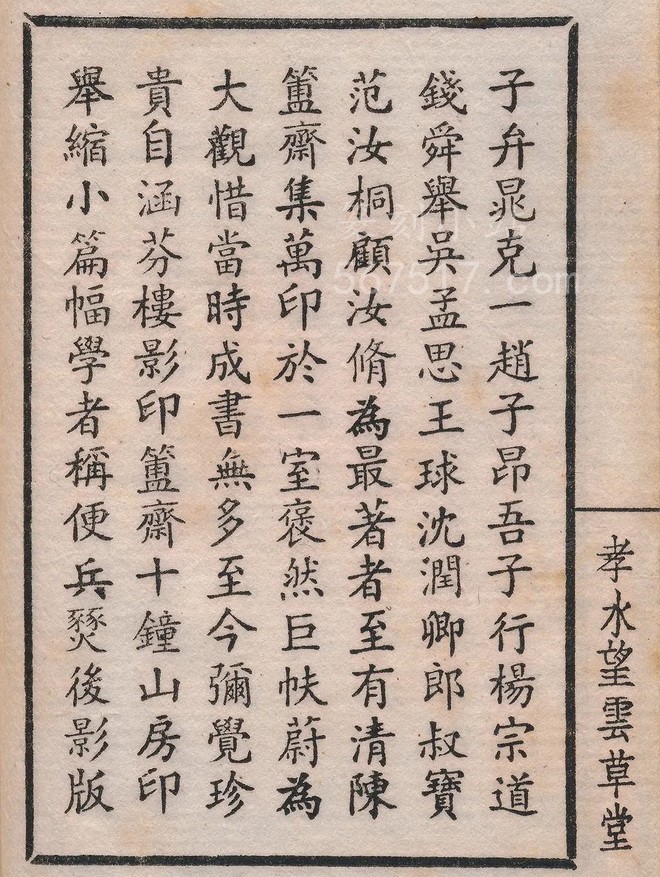 子弁晁克一趙子昂吾子行楊宗道
錢舜舉吳孟思王球沈潤卿郎叔寶
范汝桐顧汝脩為最著者至有清陳
簠齋集萬印於一室褒然巨帙蔚為
大觀惜當時成書無多至今彌覺珍
貴自涵芬樓影印簠齋十鐘山房印
舉縮小篇幅學者稱便兵燹後影版
孝水望雲草堂
567517.com